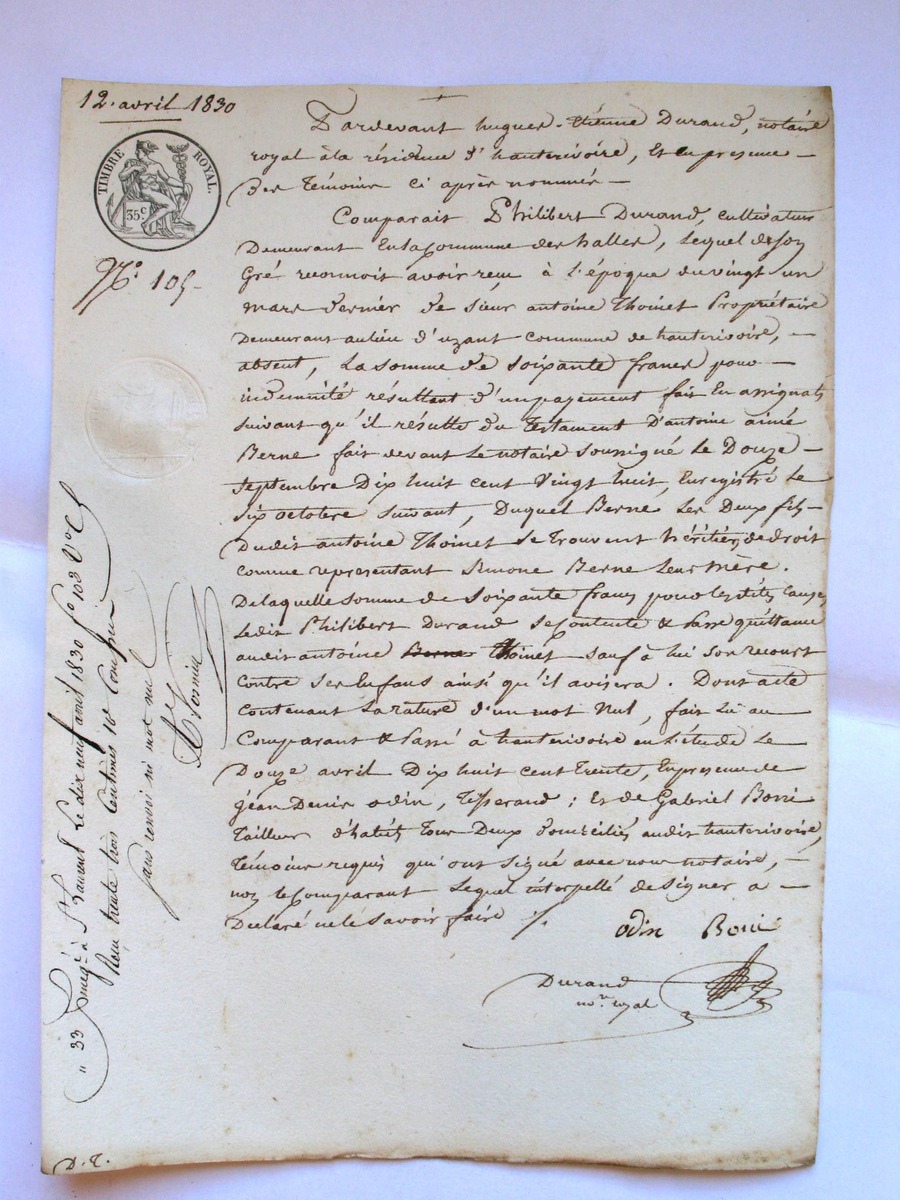 12. avril 1830
TIMBRE ROYAL.
35 c
N.° 105
Pardevant hugues-Etienne Durand, notaire
royal à la résidence d'hauterivoire, Et en presence
Des Témoins ci après nommés
Comparait Philibert Durand, cultivateur
Demeurant En la Commune des halles, Lequel de son
Gré reconnois avoir reçu à L'époque du vingt un
mars dernier de sieur antoine Thoinet Propriétaire
Demeurant au lieu d'uzant commune de hauterivoire,
absent, La somme de soixante francs pour
indemnité résultant d'un payement fait En assignats
suivant qu'il résulte du Testament D'antoine aimé
Berne fait devant Le notaire soussigné Le Douze
septembre Dix huit cent Vingt huit, Enregistré Le
six octobre suivant, Duquel Berne Les Deux fils
Dudit antoine Thoinet se trouvent héritiers de droit
comme representant Simone Berne Leur Mère.
De laquelle somme de soixante francs pour les dites causes
Ledit Philibert Durand se contente & Passe quittance
audit antoine Berne Thoinet sauf à lui son recourt
contre ses Enfans ainsi qu'il avisera. Dont acte
contenant La rature d'un mot Nul, fait Lu au
Comparant & Passé à hauterivoire en L'étude Le
Douze avril Dix huit cent trente, En presence de
jean Denis odin, Tisserand; Et de Gabriel Borri
Tailleur d'habits Tous Deux domiciliés audit hauterivoire,
Témoins requis qui ont signé avec nous notaire,
non le Comparant Lequel interpellé de signer a
Declaré ne le savoir faire ./.
odin Borri
Durand
no.re royal
Enreg.é à St Laurent Le dix neuf avril 1830 f.o 108 V.o C
Reçu trente trois Centimes 10e Compris
sans renvoi ni mot nul
" 33
D. T.